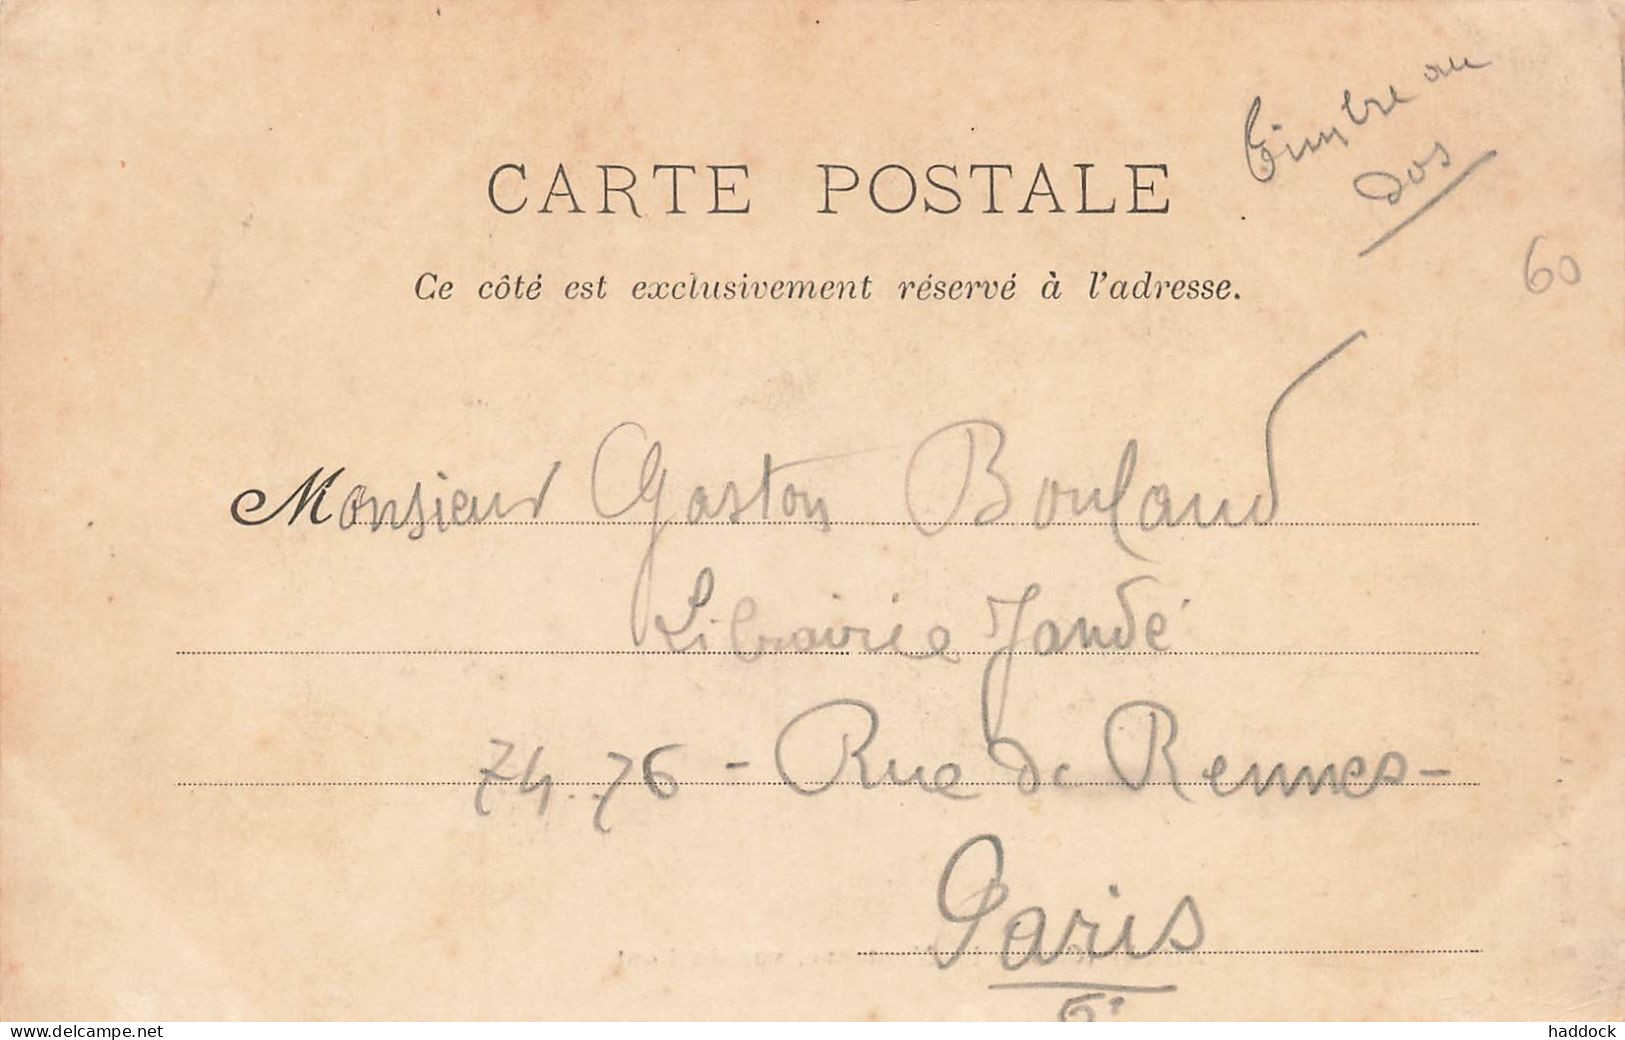 Timbre au
dos
CARTE POSTALE
60
Ce côté est exclusivement réservé à l'adresse.
Monsieur Gaston Bouland
Librairie Jandé
74.76 - Rue de Rennes -
Paris
6e
delcampe.net
haddock